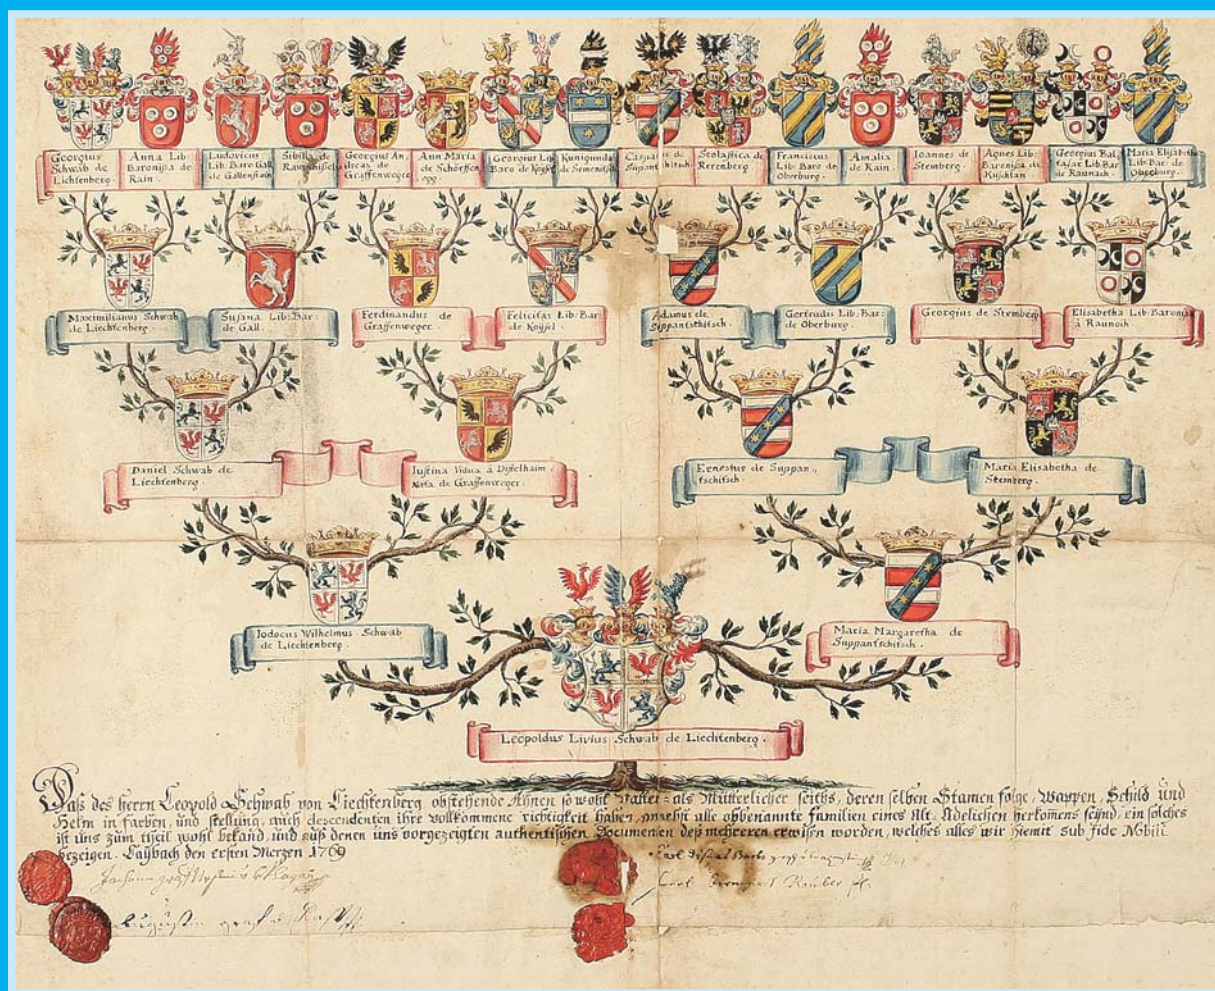 Georgius
Schwab de
Lichtenberg.
Anna Lib:
Baronissa de
Rain.
Ludovicus
Lib. Baro Gall
de Gallenstain
Sibilla de
Georgius An
dreas de
Graffenweger
Ann Maria
de Schörffen
egg.
Georgius Lib
Baro de
Kunigunda
de
Casparus de
Scolastica de
Rerenberg.
Franciscus
Lib: Baro de
Oberburg.
Amalia
de Rain.
Ioannes de
Stemberg.
Agnes Lib:
de
Georgius Bal
Lib. Bar
de Raunach.
Maria Elisabetha
Lib Bar: de
Oberburg.
Maximilianus Schwab
de Liechtenberg.
Susana Lib: Bar:
de Gall.
Ferdinandus de
Graffenweger.
Felicitas Lib: Bar:
de
Adamus de
Suppantschitsch.
Gertrudis Lib: Bar:
de Oberburg.
Georgius de Stemberg
Elisabetha Lib: Baronissa
à Raunach.
Daniel Schwab de
Liechtenberg.
Iustina Vidua à
Nata de Graffenweger.
Ernestus de Suppan,,
tschitsch.
Maria Elisabetha de
Stemberg.
Iodocus Wilhelmus Schwab
de Liechtenberg.
Maria Margaretha de
Suppantschitsch.
Leopoldus Livius Schwab de Liechtenberg.
Daß des Herrn Leopold Schwab von Liechtenberg obstehende Ahnen so wohl Vatter- als Mütterlicher seiths, deren selben Stamen folge, Wappen, Schild und
Helm in farben, und stellung, auch descendenten ihre vollkommene richtigkeit haben, anebst alle obbenante familien eines Alt-Adelichen herkomens seynd, ein solches
ist uns zum theil wohl bekand, und auß denen uns vorgezeigten authentischen Documenten deß mehreren erwisen worden, welches alles wir hiemit sub fide Nobili
bezeigen. Laybach den ersten Merzen 1769